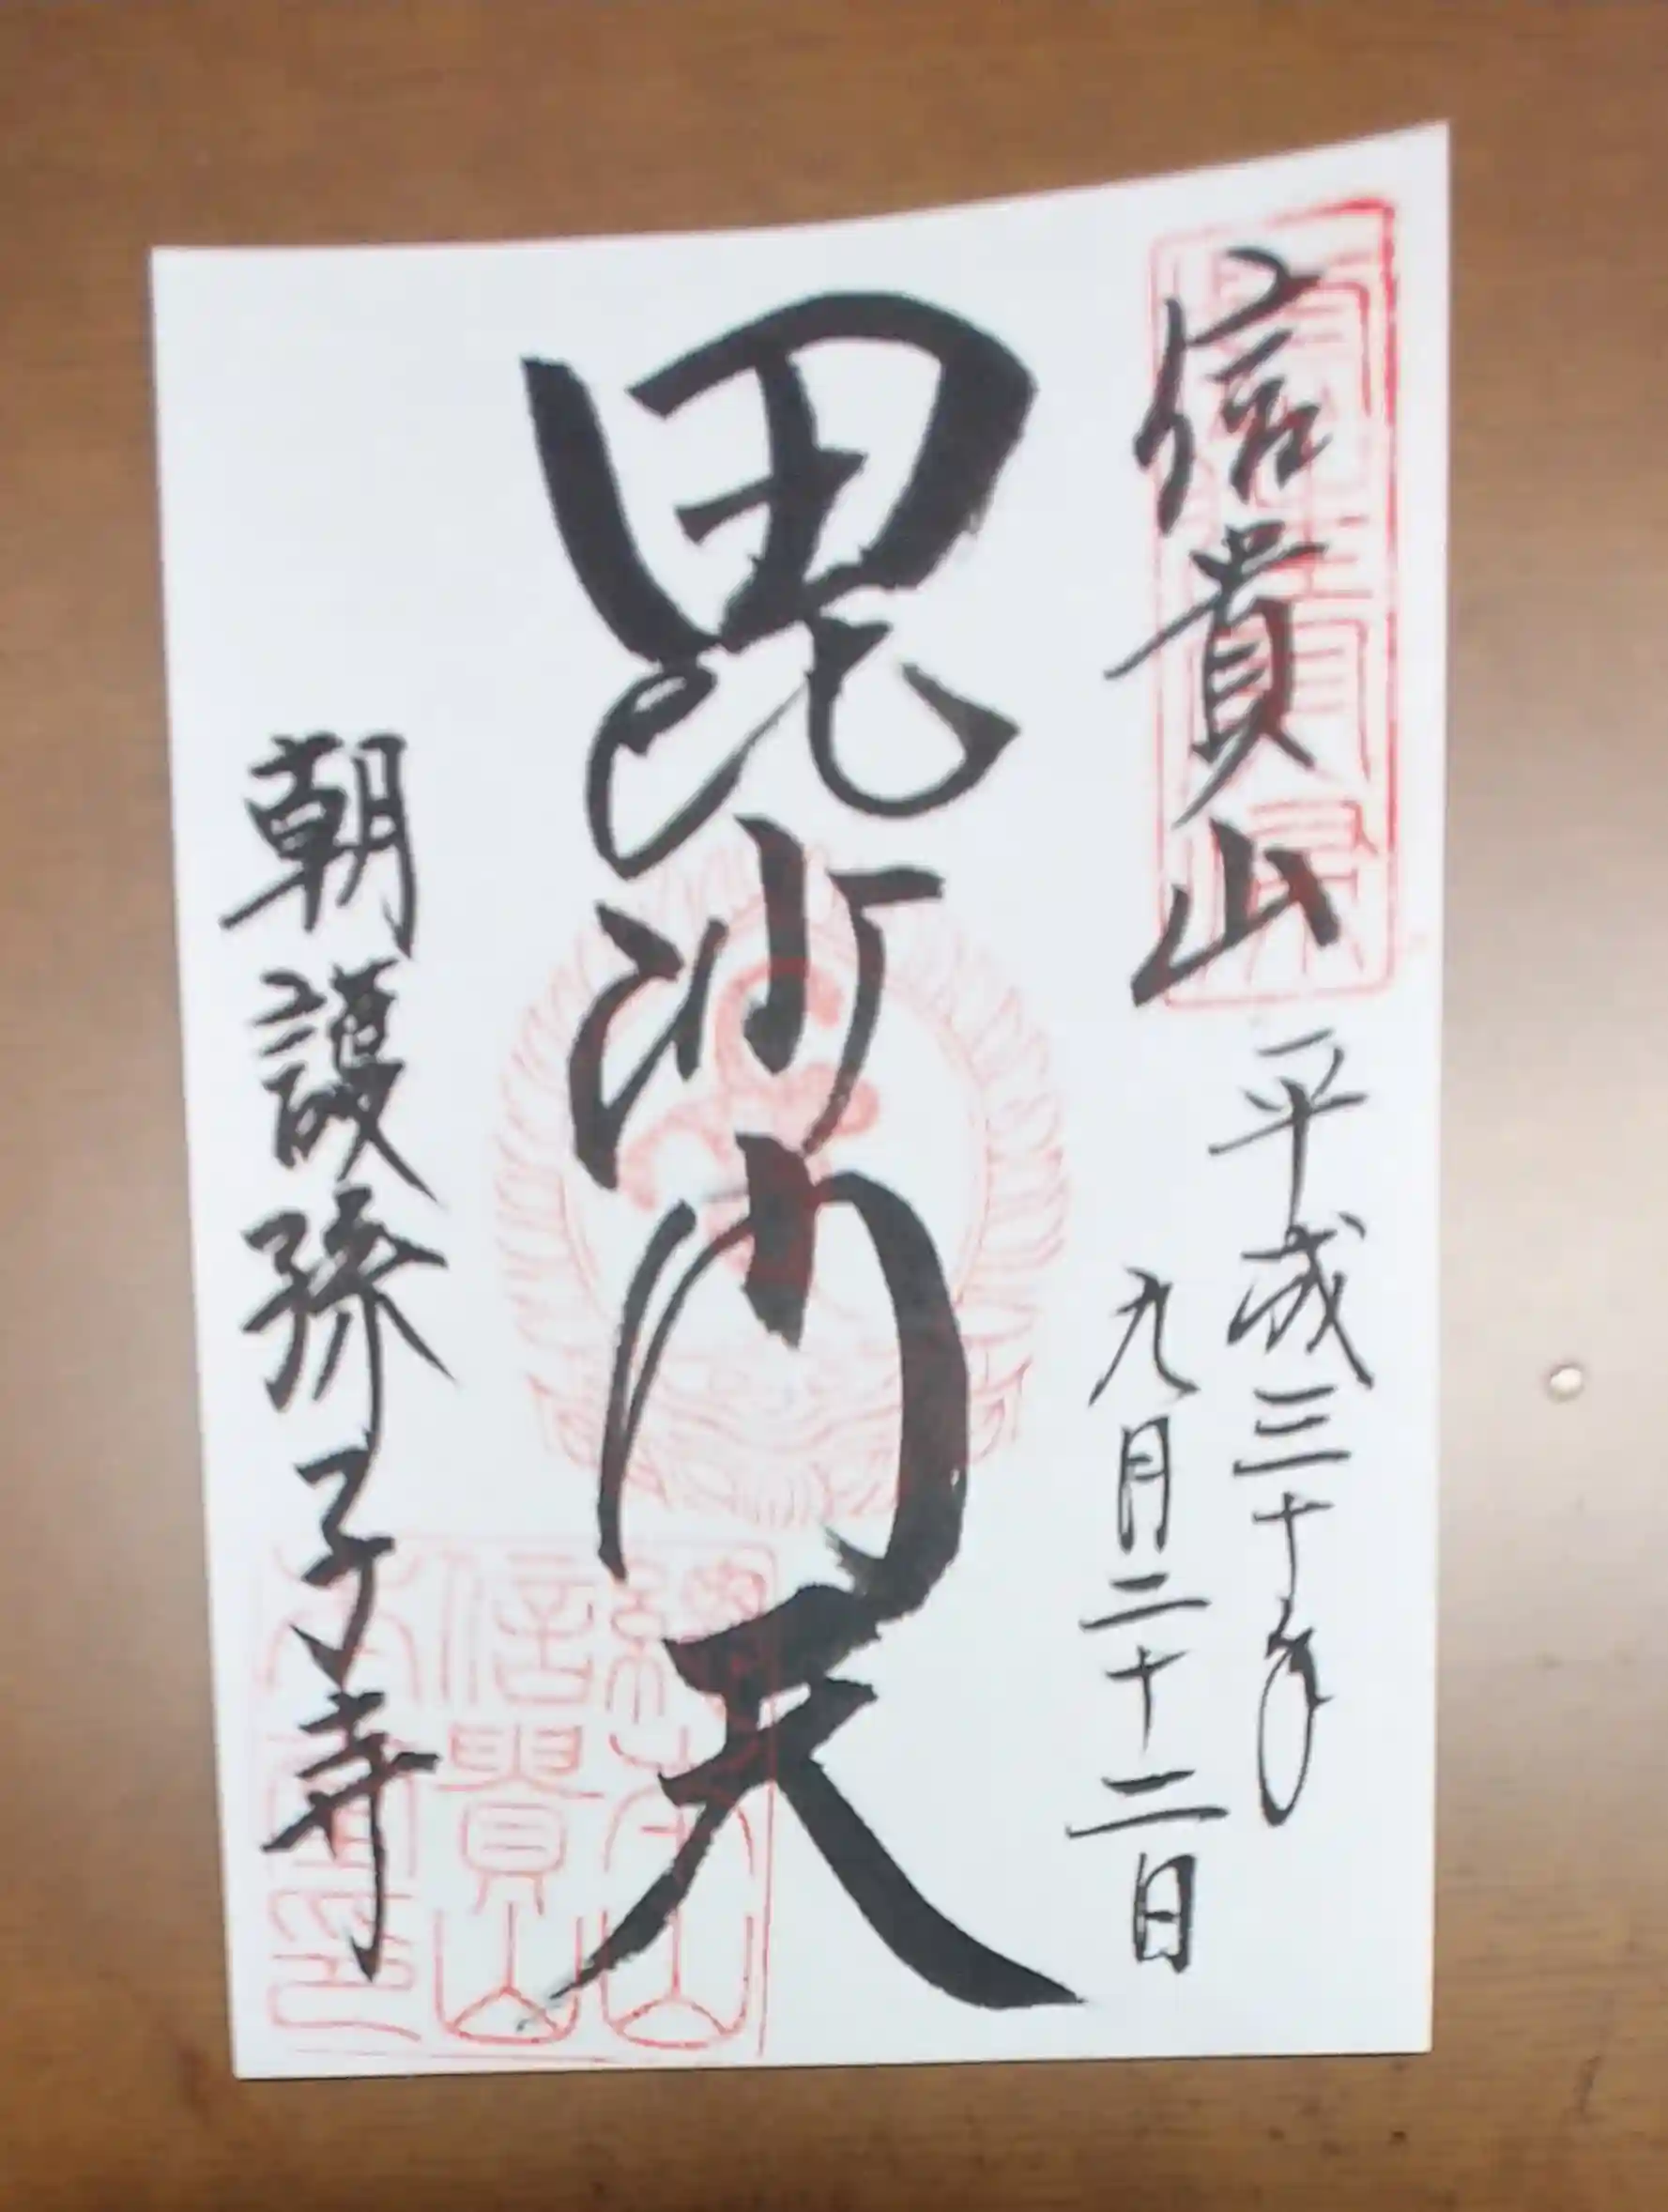 信貴山
平成三十年
九月二十二日
毘沙門天
朝護孫子寺
總本山
信貴山
本寺印